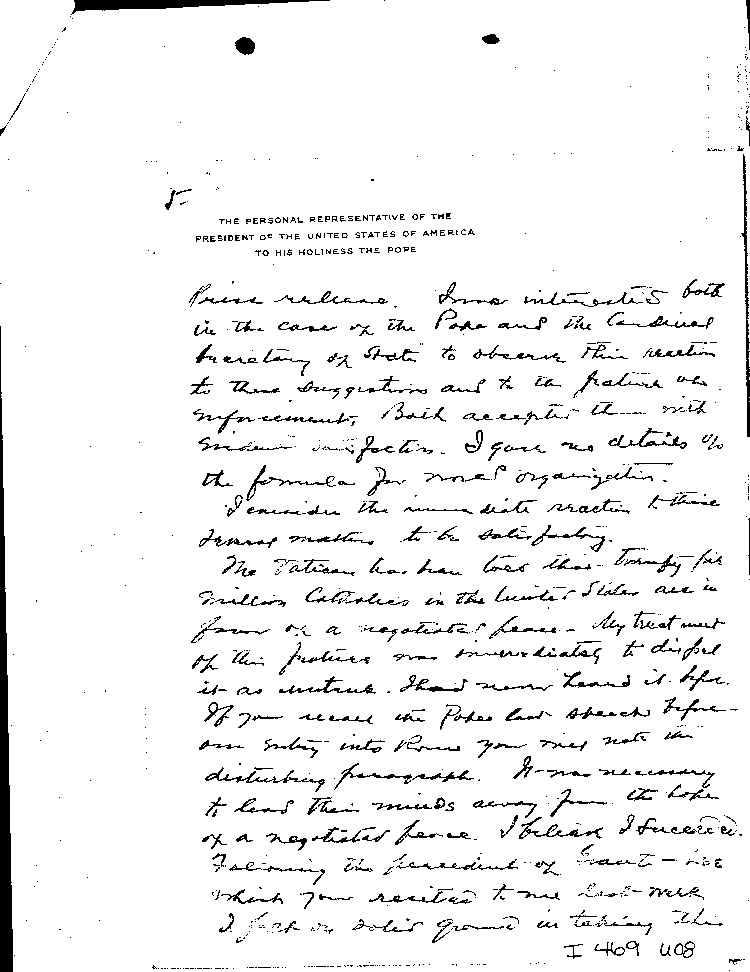 5-
THE PERSONAL REPRESENTATIVE OF THE
PRESIDENT OF THE UNITED STATES OF AMERICA
TO HIS HOLINESS THE POPE
Press release. I was interested both
in the case of the Pope and the Cardinal
Secretary of State to observe their reaction
to these suggestions and to the feature of
enforcement. Both accepted them with
evident satisfaction. I gave no details of
the formula for world organization.
I consider the immediate reaction to these
several matters to be satisfactory.
The Vatican has been told that twenty five
million Catholics in the United States are in
favor of a negotiated peace - My treatment
of this feature was immediately to dispel
it as untrue. I had never heard it before.
If you recall the Popes last speech before
our entry into Rome you may note the
disturbing paragraph. It was necessary
to lead their minds away from the hope
of a negotiated peace. I believe I succeeded.
Following the precedent of Grant - Lee
which you recited to me last week
I felt on solid ground in taking this
I 469 U08